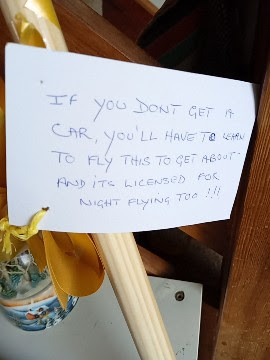 IF YOU DONT GET A
CAR, YOU'LL HAVE TO LEARN
TO FLY THIS TO GET ABOUT -
AND ITS LICENSED FOR
NIGHT FLYING TOO !!!